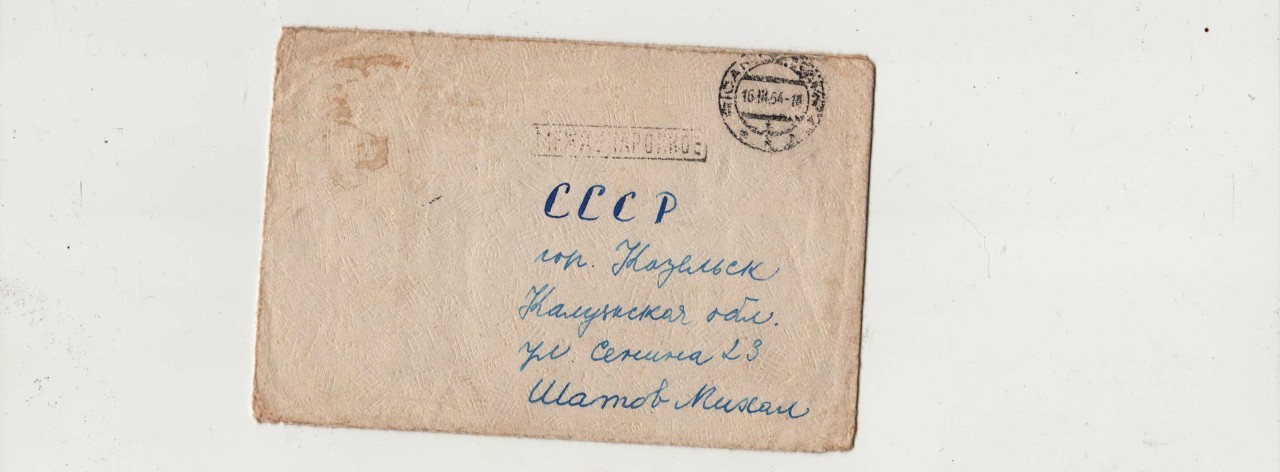 16.III.64-18
МЕЖДУНАРОДНОЕ
СССР
гор. Козельск
Калужская обл.
ул. Сенина 23
Шатов Михал